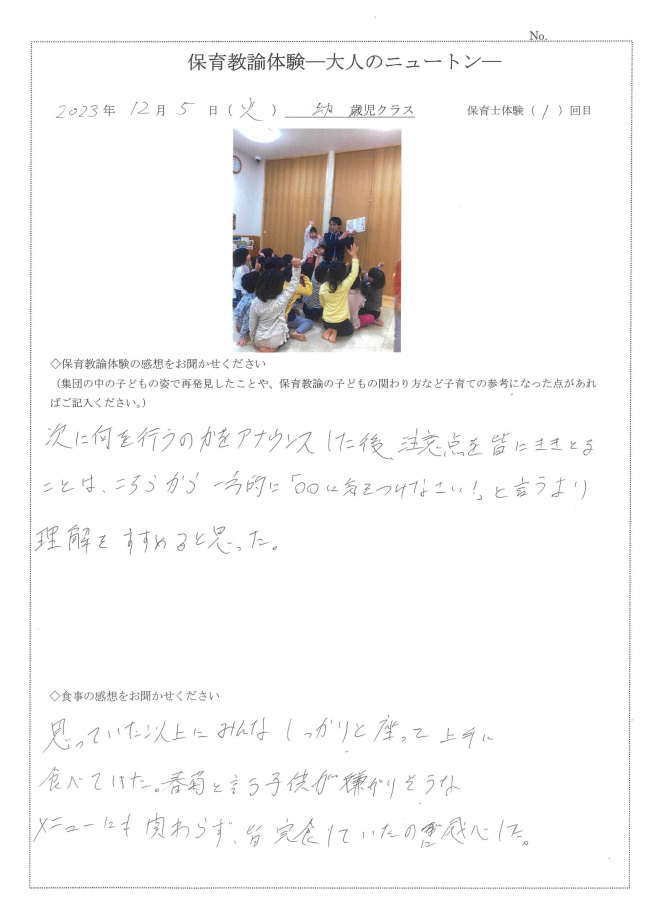 No.
保育教諭体験―大人のニュートン―
2023年 12月 5日(火) 幼 歳児クラス 保育士体験(1)回目
◇保育教諭体験の感想をお聞かせください
(集団の中の子どもの姿で再発見したことや、保育教諭の子どもの関わり方など子育ての参考になった点があれ
ばご記入ください。)
次に何を行うのかをアナウンスした後、注意点を皆にききとる
ことは、こちらから一方的に「○○に気をつけなさい!」と言うより
理解をすすめると思った。
◇食事の感想をお聞かせください
思っていた以上にみんなしっかりと座って上手に
食べてけた。春菊と言う子供が嫌がりそうな
メニューにも関わらず、皆完食していたのに感心した。